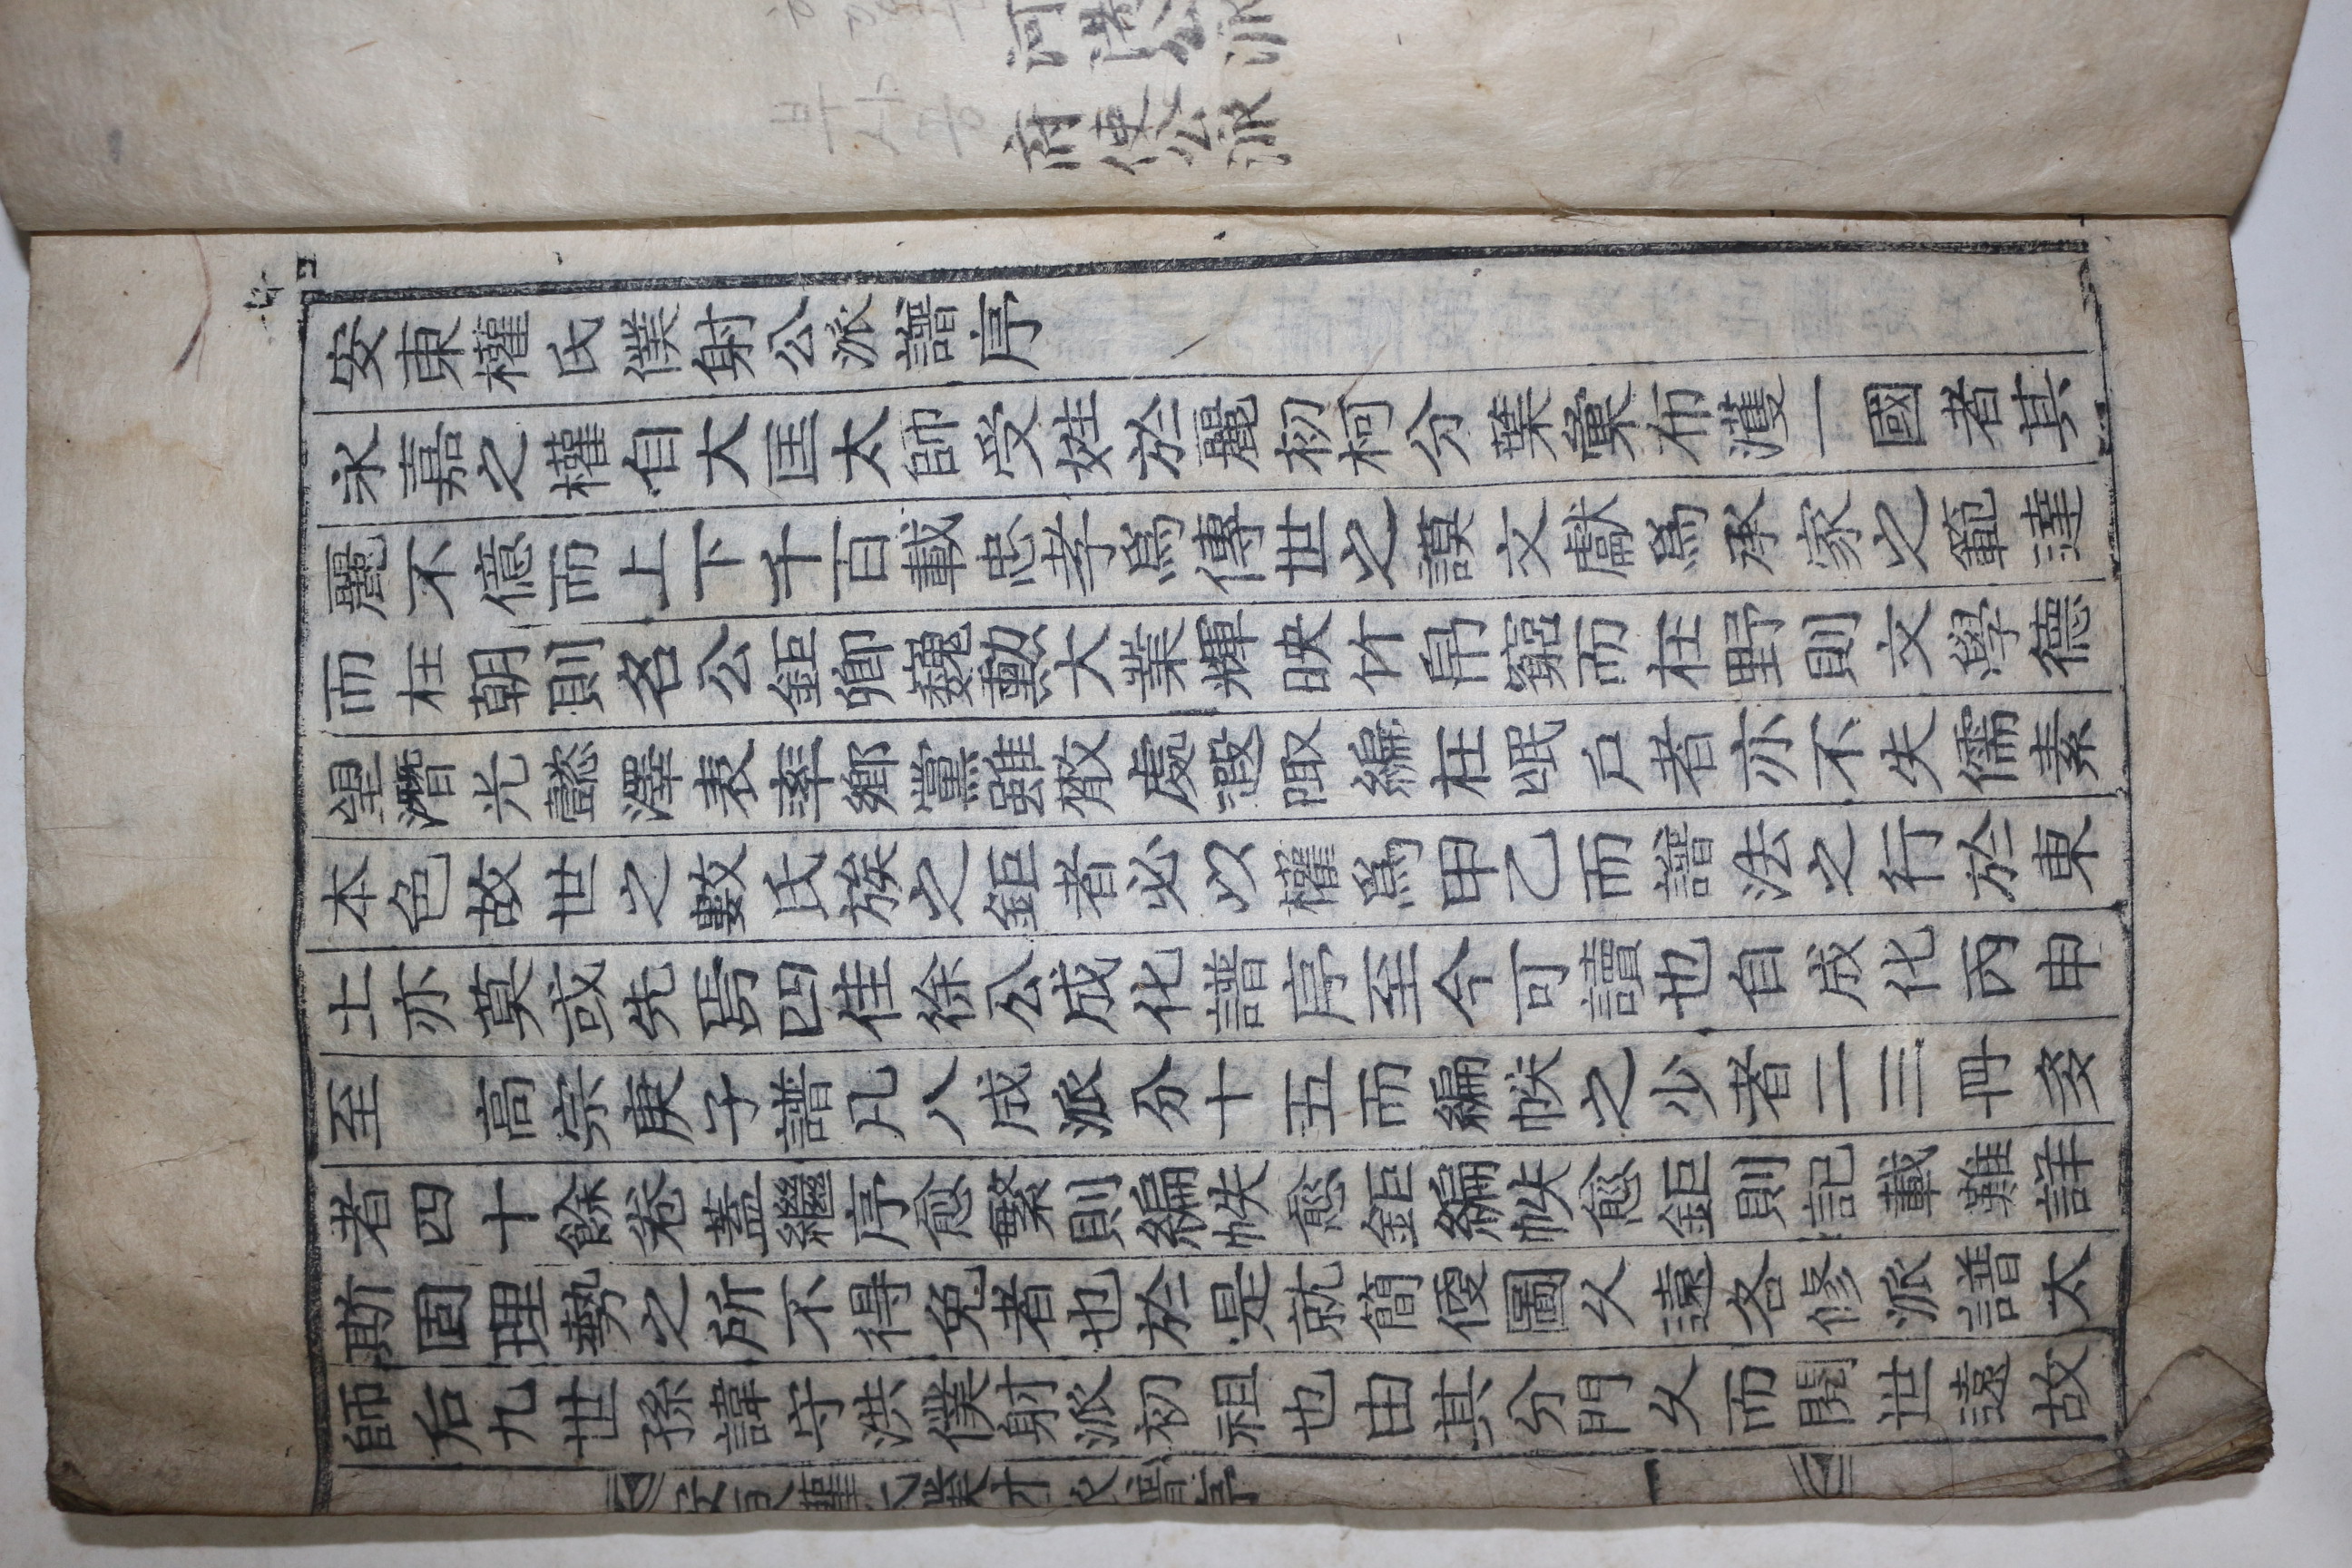 河陽公派
부사공
府使公派
安東權氏僕射公派譜序
永嘉之權自大匡太師受姓於麗初柯分葉彙布濩一國者其
麗不億而上下千百載忠孝爲傳世之謨文獻爲承家之範達
而在朝則名公鉅卿巍勳大業輝映竹帛窮而在野則文學德
望潛光懿澤表率鄕黨雖散處遐陬編在氓戶者亦不失儒素
本色故世之數氏族之鉅者必以權爲甲乙而譜法之行於東
土亦莫或先焉四佳徐公成化譜序至今可讀也自成化丙申
至 高宗庚子譜凡八成派分十五而編帙之少者二三冊多
者四十餘卷蓋繼序愈繁則編帙愈鉅編帙愈鉅則記載難詳
斯固理勢之所不得免者也於是就簡便圖久遠各修派譜太
師后九世孫諱守洪僕射派初祖也由其分門久而閱世遠故
安東權氏僕射派譜序
一